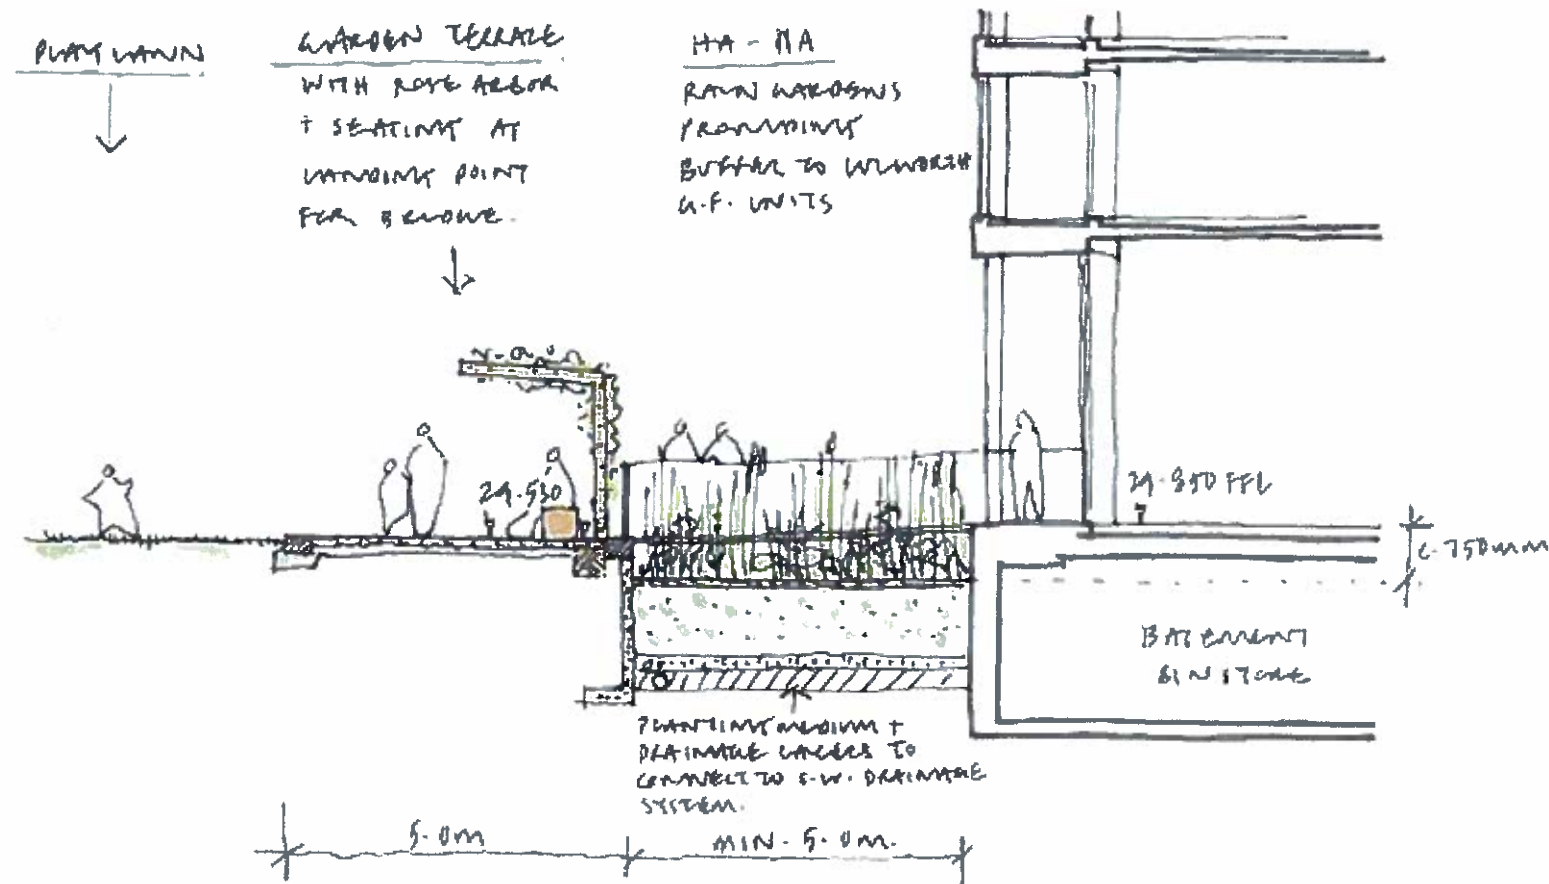 PLAY LAWN
GARDEN TERRACE
WITH ROSE ARBOR
+ SEATING AT
LANDING POINT
FOR BRIDGE.
HA-HA
RAIN GARDENS
PROVIDING
BUFFER TO
G.F. UNITS
29.530
29.850 FFL
C.750mm
BASEMENT
BIN STORE
PLANTING MEDIUM +
DRAINAGE LAYERS TO
CONNECT TO S.W. DRAINAGE
SYSTEM.
5.0m
MIN. 5.0m.